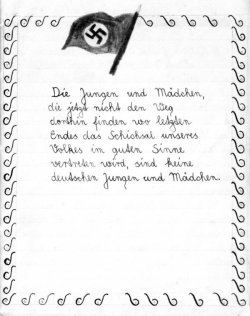 Die Jungen und Mädchen,
die jetzt nicht den Weg
dorthin finden wo letzten
Endes das Schicksal unseres
Volkes im guten Sinne
vertreten wird, sind keine
deutschen Jungen und Mädchen.